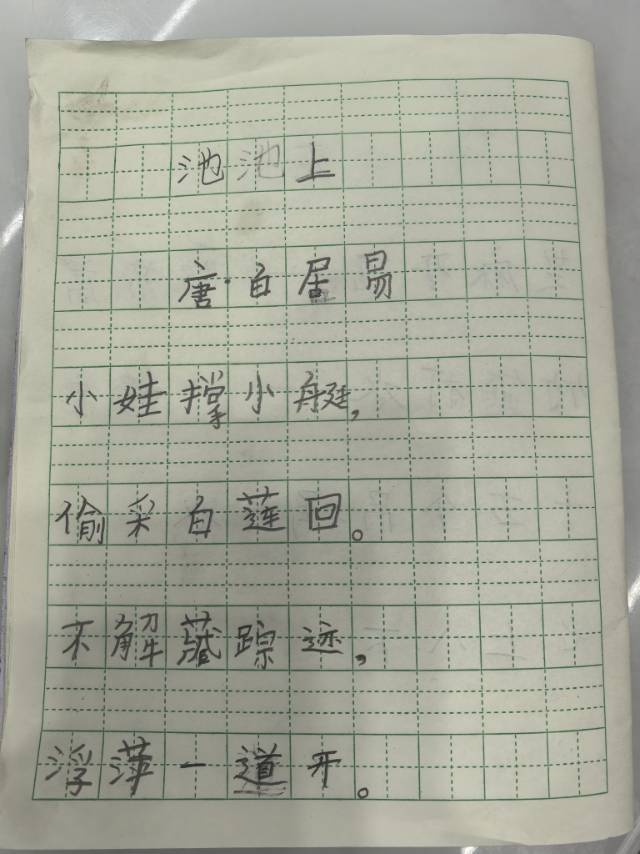 池池上
唐·白居易
小娃撑小艇,
偷采白莲回。
不解藏踪迹,
浮萍一道开。